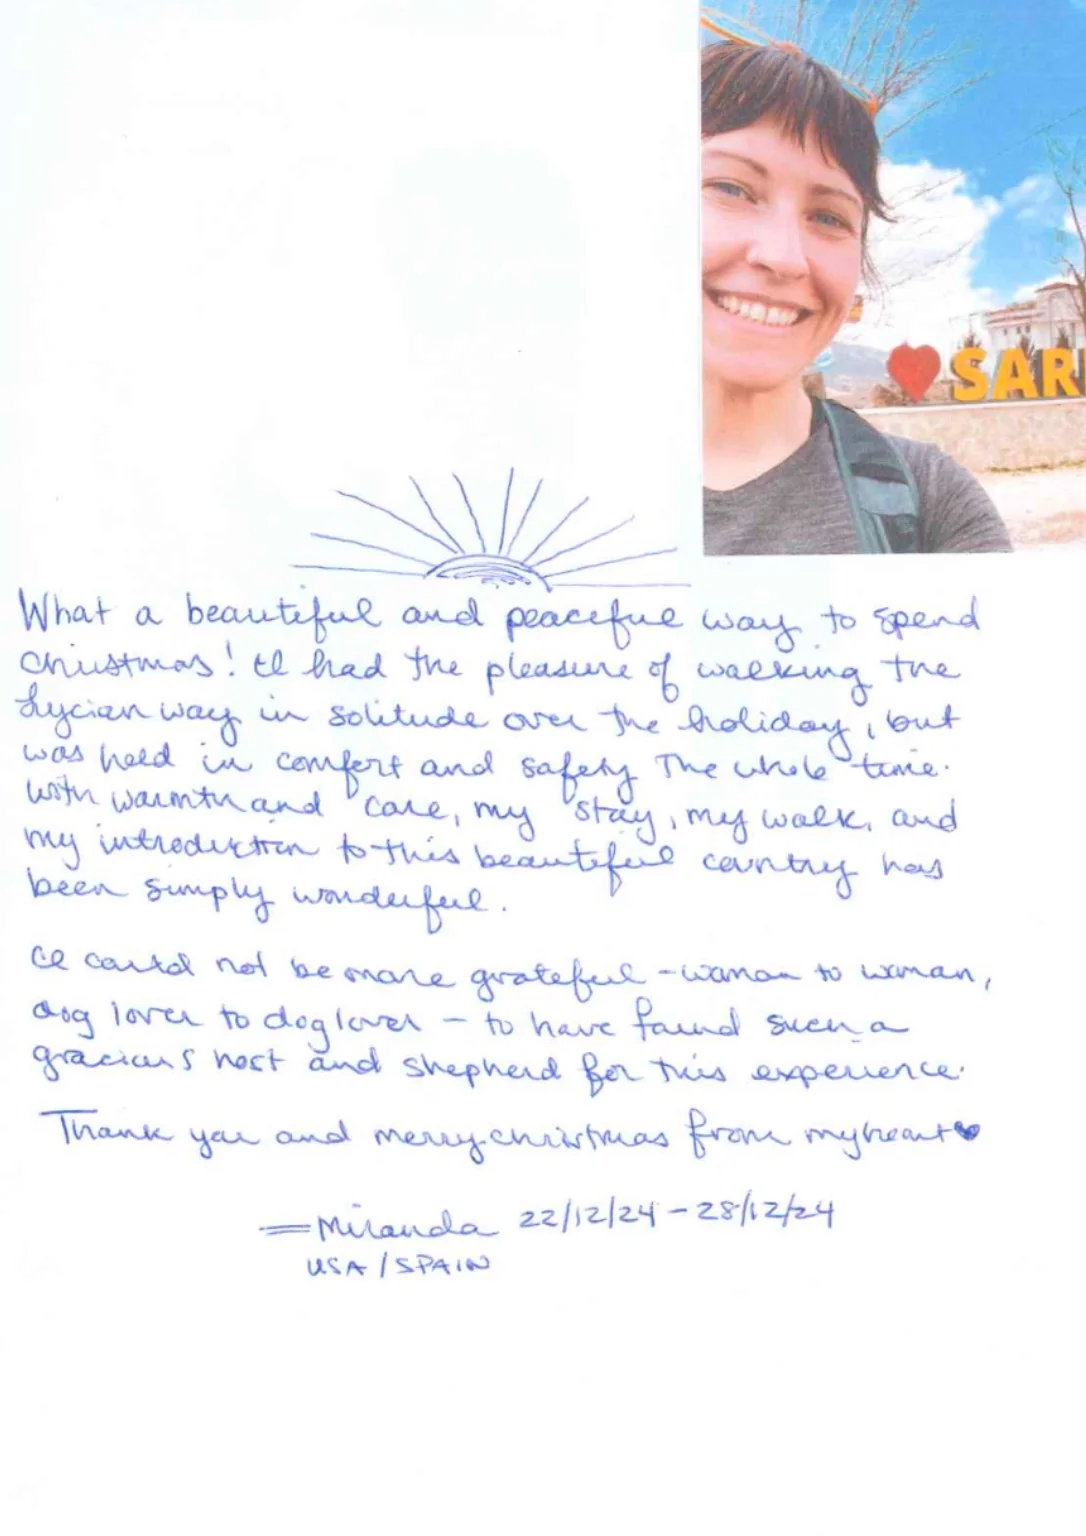 SAR
What a beautiful and peaceful way to spend
Christmas! I had the pleasure of walking the
Lycian way in solitude over the holiday, but
was held in comfort and safety the whole time.
with warmth and care, my stay, my walk, and
my introduction to this beautiful country has
been simply wonderful.
I could not be more grateful - woman to woman,
dog lover to dog lover - to have found such a
gracious host and shepherd for this experience.
Thank you and merry christmas from my heart
Miranda 22/12/24 - 28/12/24
USA / SPAIN